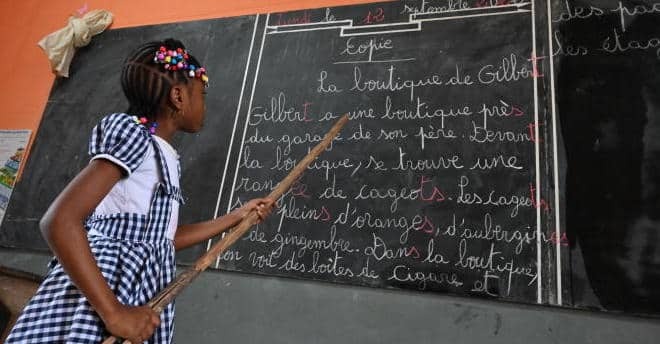 Lundi le 12 septembre
Copie
La boutique de Gilbert
Gilbert a une boutique près
du garage de son père. Devant
la boutique, se trouve une
rangée de cageots. Les cageots
pleins d'oranges, d'aubergines
de gingembre. Dans la boutique,
on voit des boîtes de Cigare et
des
les